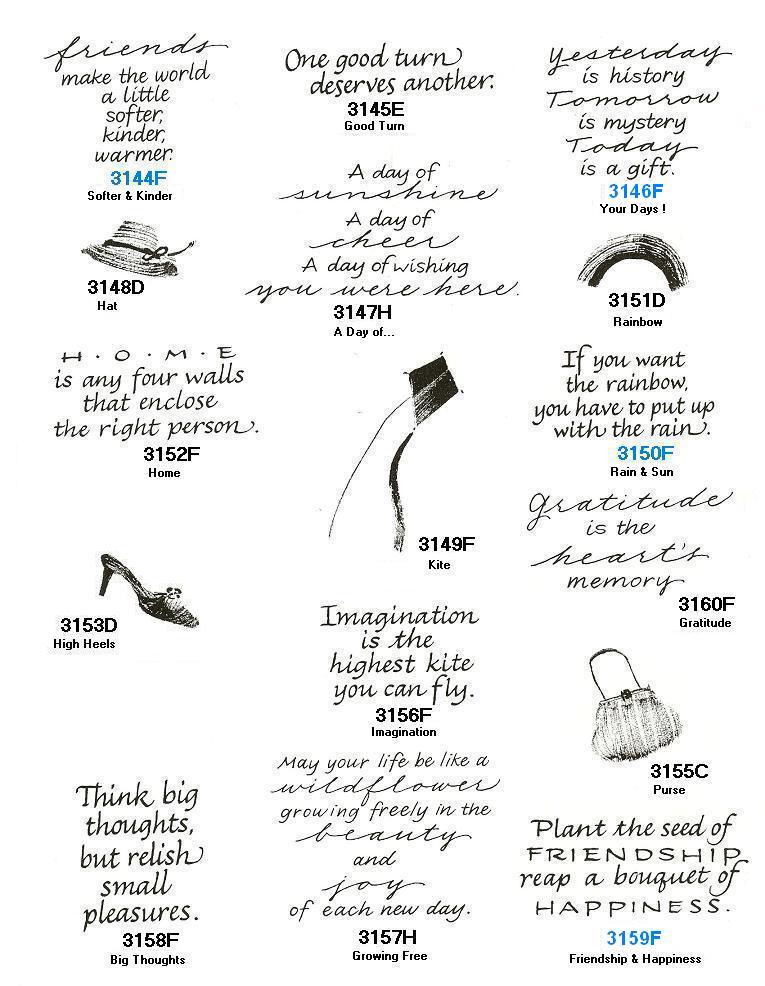 friends
make the world
a little
softer,
kinder,
warmer.
3144F
Softer & Kinder
One good turn
deserves another.
3145E
Good Turn
Yesterday
is history
Tomorrow
is mystery
Today
is a gift.
3146F
Your Days !
A day of
sunshine
A day of
cheer
A day of wishing
you were here.
3147H
A Day of...
3148D
Hat
3151D
Rainbow
H · O · M · E
is any four walls
that enclose
the right person.
3152F
Home
3149F
Kite
If you want
the rainbow,
you have to put up
with the rain.
3150F
Rain & Sun
Gratitude
is the
heart's
memory
3160F
Gratitude
3153D
High Heels
Imagination
is the
highest kite
you can fly.
3156F
Imagination
3155C
Purse
Think big
thoughts,
but relish
small
pleasures.
3158F
Big Thoughts
May your life be like a
wildflower
growing freely in the
beauty
and
joy
of each new day.
3157H
Growing Free
Plant the seed of
FRIENDSHIP
reap a bouquet of
HAPPINESS.
3159F
Friendship & Happiness